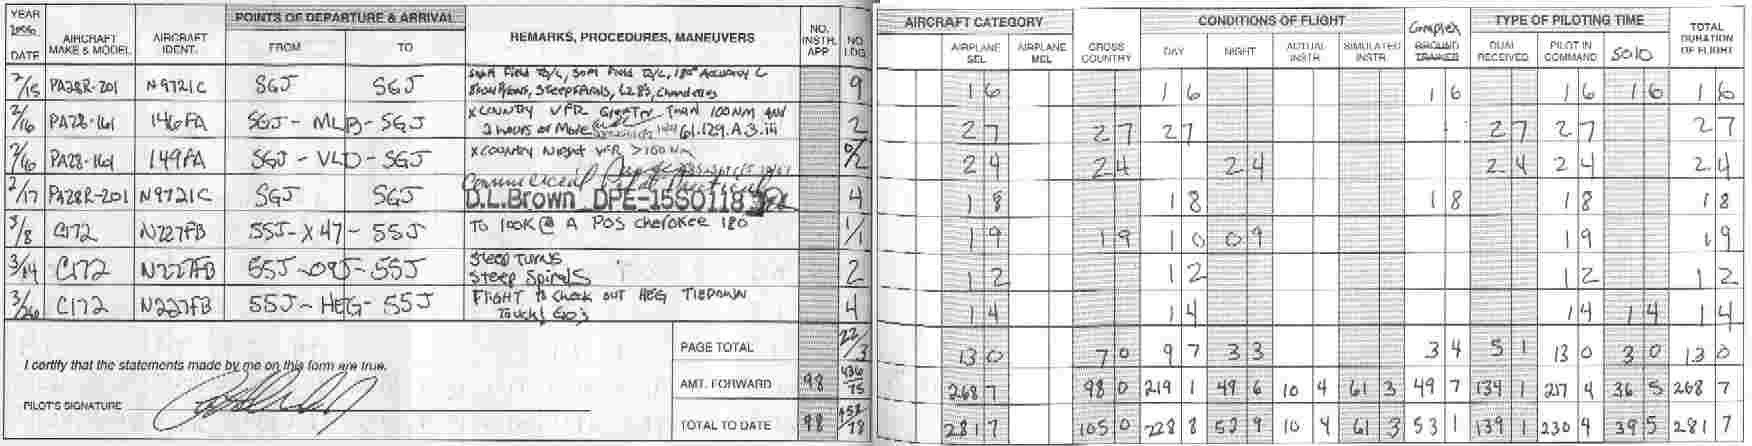 YEAR
DATE
AIRCRAFT MAKE & MODEL
AIRCRAFT IDENT.
POINTS OF DEPARTURE & ARRIVAL
FROM TO
REMARKS, PROCEDURES, MANEUVERS
NO. INSTR. APP.
NO. LDG.
AIRCRAFT CATEGORY
AIRPLANE SEL
AIRPLANE MEL
CROSS COUNTRY
CONDITIONS OF FLIGHT
DAY NIGHT ACTUAL INSTR. SIMULATED INSTR.
Complex
GROUND TRAINER
TYPE OF PILOTING TIME
DUAL RECEIVED PILOT IN COMMAND SOLO
TOTAL DURATION OF FLIGHT
2/15 PA28R-201 N9721C SGJ SGJ 9 1 6 1 6 1 6 1 6 1 6 1 6
Steep Spirals, L 8's, Chandelles
2/16 PA28-161 146FA SGJ - MLB - SGJ X COUNTRY VFR Greater Than 100NM and 2 2 7 2 7 2 7 2 7 2 7 2 7
2 hours or More 61.129.A.3.iii
2/16 PA28-161 149FA SGJ - VLD - SGJ X COUNTRY Night VFR >100 NM 0/2 2 4 2 4 2 4 2 4 2 4 2 4
2/17 PA28R-201 N9721C SGJ SGJ Commercial Pilot 4 1 8 1 8 1 8 1 8 1 8
D.L.Brown DPE-15SO118
3/8 C172 N227FB 55J - X47 - 55J To look @ A POS cherokee 180 1/1 1 9 1 9 1 0 0 9 1 9 1 9
3/14 C172 N227FB 55J - 09J - 55J Steep Turns 2 1 2 1 2 1 2 1 2
Steep Spirals
3/26 C172 N227FB 55J - HEG - 55J FLIGHT to check out HEG TIEDOWN 4 1 4 1 4 1 4 1 4 1 4
Touch/Go's
I certify that the statements made by me on this form are true.
PILOT'S SIGNATURE
PAGE TOTAL 22/3 13 0 7 0 9 7 3 3 3 4 5 1 13 0 3 0 13 0
AMT. FORWARD 98 436/75 268 7 98 0 219 1 49 6 10 4 61 3 49 7 134 1 217 4 36 5 268 7
TOTAL TO DATE 98 458/78 281 7 105 0 228 8 52 9 10 4 61 3 53 1 139 1 230 4 39 5 281 7